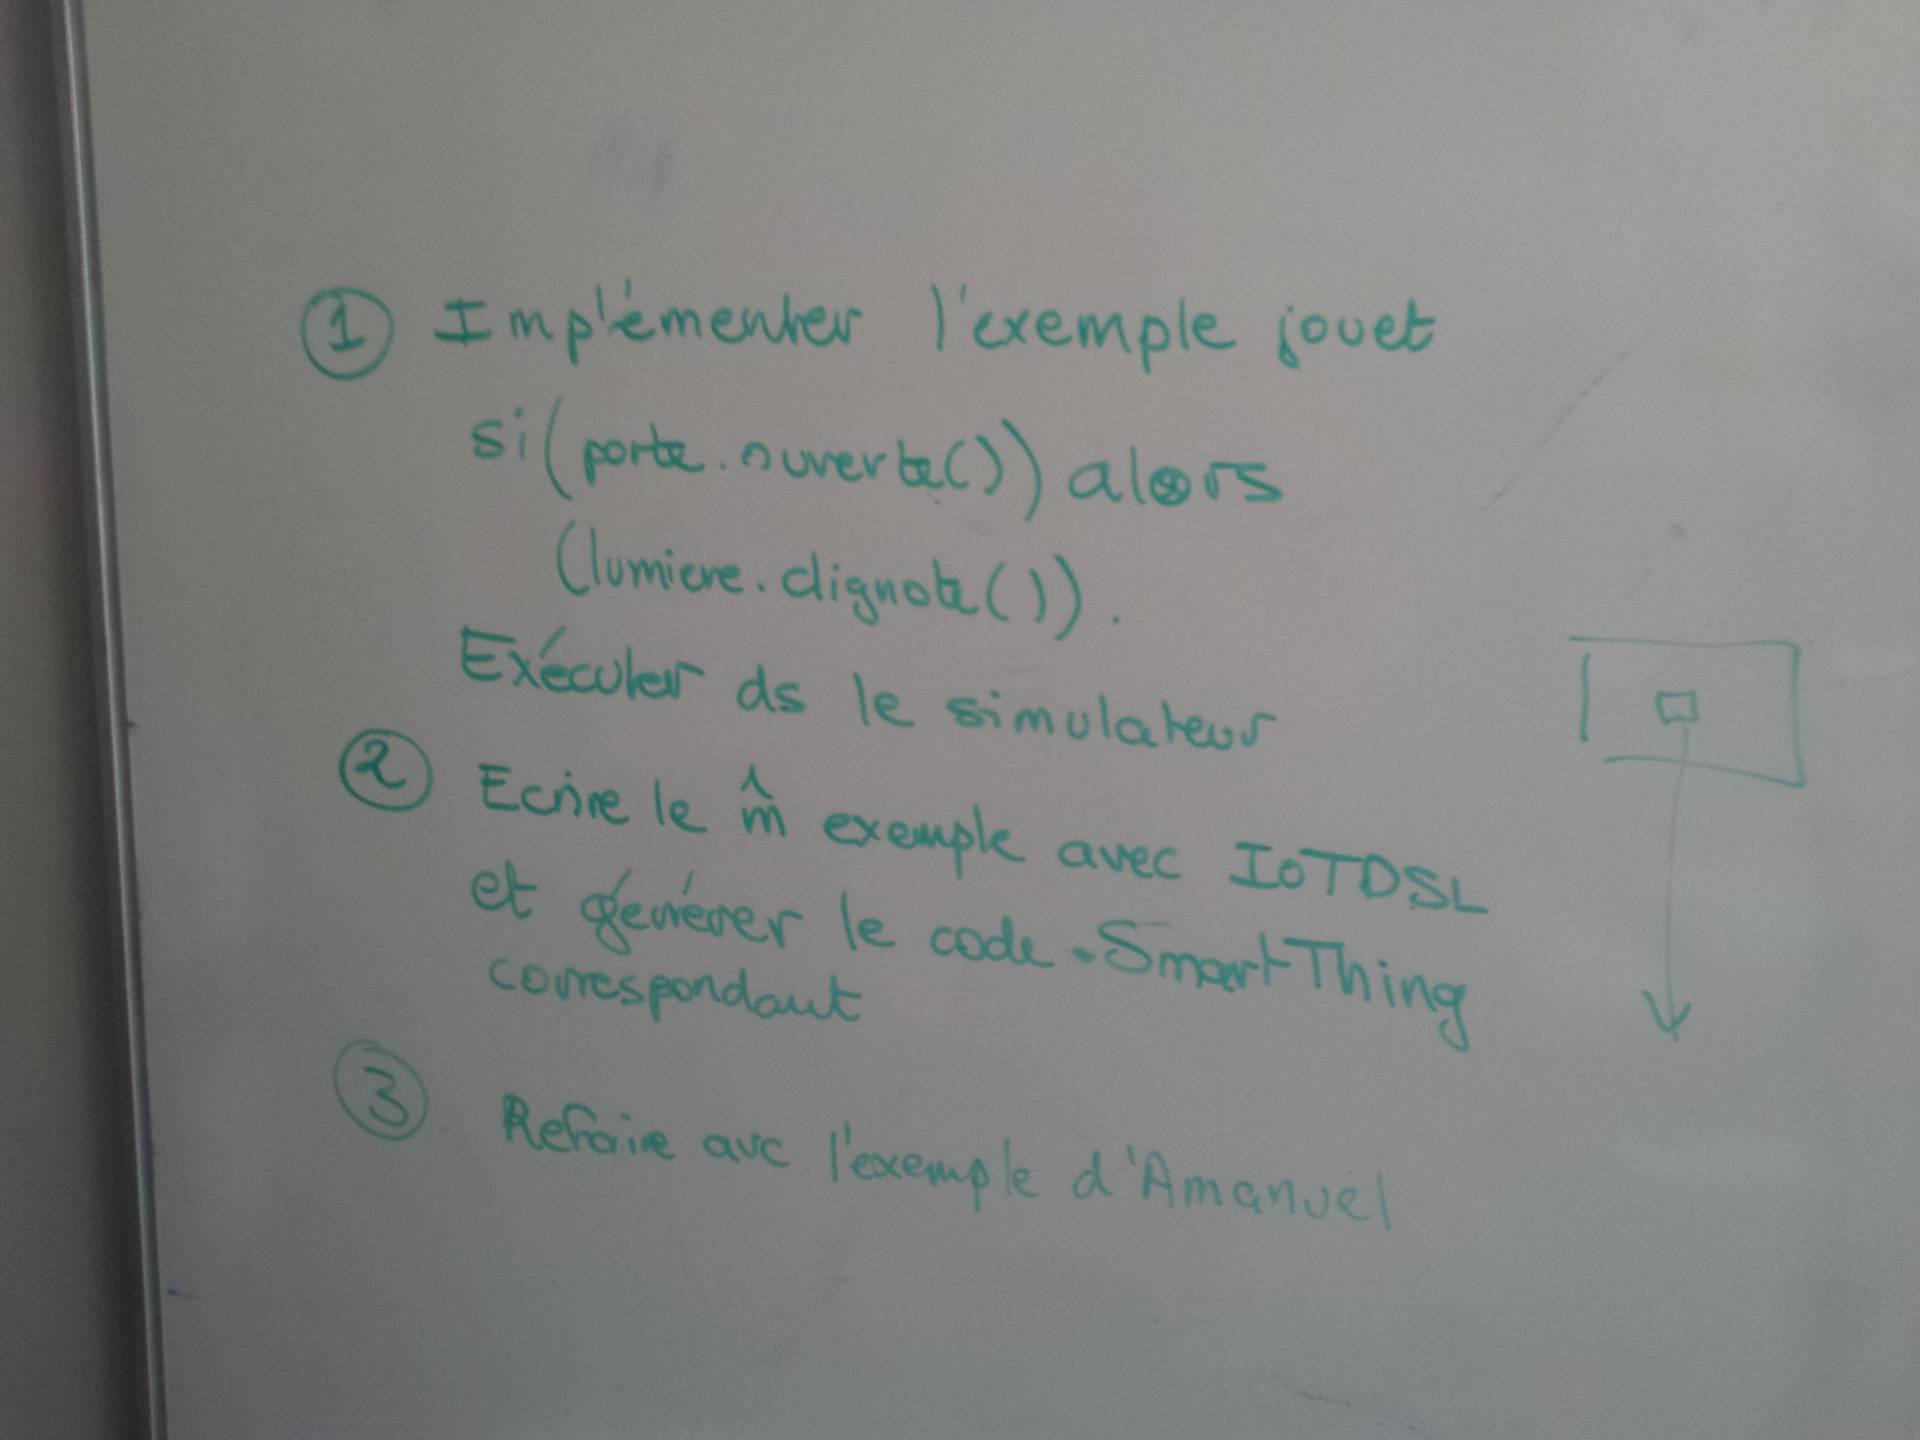 ① Implémenter l'exemple jouet
si(porte.ouverte()) alors
(lumiere.clignote()).
Exécuter ds le simulateur
② Ecrire le m̂ exemple avec IoTDSL
et générer le code SmartThing
correspondant
③ Refaire avc l'exemple d'Amanuel